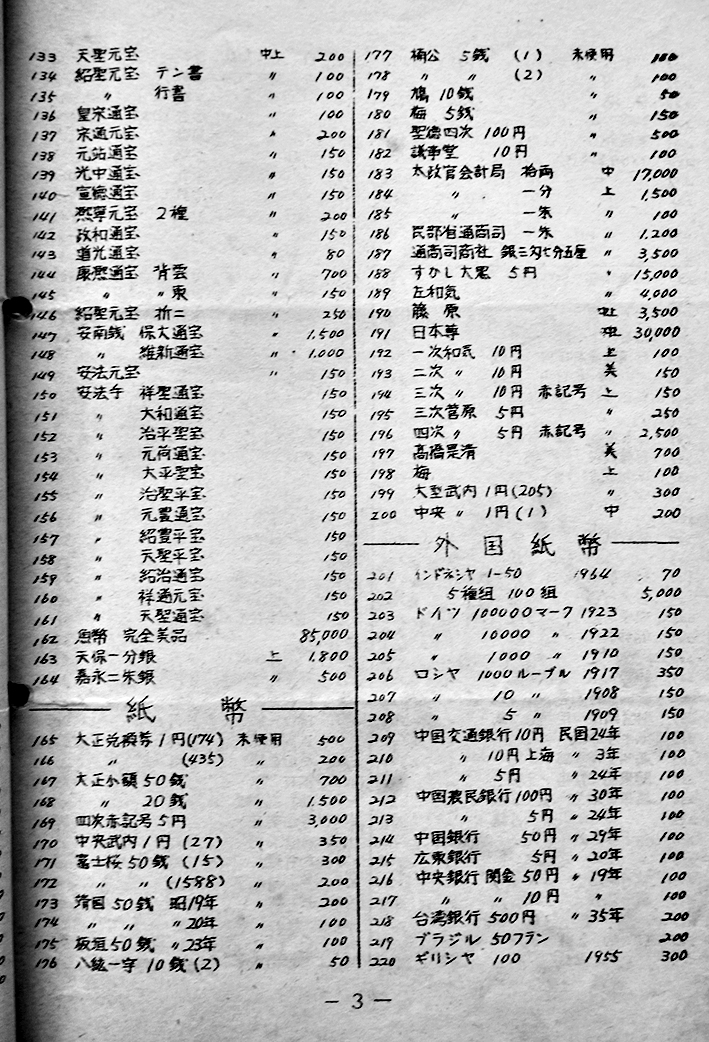 133 天聖元宝 中上 200
134 紹聖元宝 テン書 〃 100
135 〃 行書 〃 100
136 皇宋通宝 〃 100
137 宋通元宝 〃 200
138 元祐通宝 〃 150
139 光中通宝 〃 150
140 宣徳通宝 〃 150
141 熙寧元宝 2種 〃 200
142 政和通宝 〃 150
143 道光通宝 〃 80
144 康熙通宝 背雲 〃 700
145 〃 〃東 〃 150
146 紹聖元宝 折二 〃 250
147 安南銭 保大通宝 〃 1,500
148 〃 維新通宝 〃 1,000
149 安法元宝 〃 150
150 安法手 祥聖通宝 150
151 〃 大和通宝 150
152 〃 治平聖宝 150
153 〃 元符通宝 150
154 〃 大平聖宝 150
155 〃 治聖平宝 150
156 〃 元豊通宝 150
157 〃 紹豊平宝 150
158 〃 天聖平宝 150
159 〃 紹治通宝 150
160 〃 祥通元宝 150
161 〃 天聖通宝 150
162 魚幣 完全美品 85,000
163 天保一分銀 上 1,800
164 嘉永二朱銀 〃 500
紙幣
165 大正兌換券 1円(174) 未使用 500
166 〃 (435) 〃 200
167 大正小額 50銭 〃 700
168 〃 20銭 〃 1,500
169 四次赤記号 5円 〃 3,000
170 中央武内 1円 (27) 〃 350
171 富士桜 50銭 (15) 〃 300
172 〃 〃 (1588) 〃 200
173 靖国 50銭 昭19年 〃 200
174 〃 〃 〃20年 〃 100
175 板垣 50銭 〃23年 〃 100
176 八紘一宇 10銭 (2) 〃 50
177 楠公 5銭 (1) 未使用 100
178 〃 〃 (2) 〃 100
179 鳩 10銭 〃 50
180 梅 5銭 〃 150
181 聖徳四次 100円 〃 500
182 議事堂 10円 〃 100
183 太政官会計局 拾両 中 17,000
184 〃 一分 上 1,500
185 〃 一朱 〃 100
186 民部省通商司 一朱 〃 1,200
187 通商司商社 銀三匁七分五厘 〃 3,500
188 すかし大黒 5円 〃 15,000
189 左和気 〃 4,000
190 藤原 中上 3,500
191 日本尊 中 30,000
192 一次和気 10円 上 100
193 二次 〃 10円 美 150
194 三次 〃 10円 赤記号 上 150
195 三次菅原 5円 〃 250
196 四次 〃 5円 赤記号 〃 2,500
197 高橋是清 美 700
198 梅 上 100
199 大型武内 1円(205) 〃 300
200 中央 〃 1円(1) 中 200
外国紙幣
201 インドネシヤ 1-50 1964 70
202 5種組 100組 5,000
203 ドイツ 100000マーク 1923 150
204 〃 10000 〃 1922 150
205 〃 1000 〃 1910 150
206 ロシヤ 1000ルーブル 1917 350
207 〃 10 〃 1908 150
208 〃 5 〃 1909 150
209 中国交通銀行 10円 民国24年 100
210 〃 10円 上海 〃 3年 100
211 〃 5円 〃 24年 100
212 中国農民銀行 100円 〃 30年 100
213 〃 5円 〃 24年 100
214 中国銀行 50円 〃 29年 100
215 広東銀行 5円 〃 20年 100
216 中央銀行 関金 50円 〃 19年 100
217 〃 〃 10円 〃 100
218 台湾銀行 500円 〃 35年 200
219 ブラジル 50フラン 200
220 ギリシヤ 100 1955 300
— 3 —